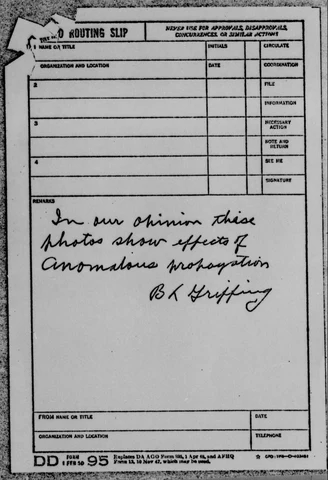 O ROUTING SLIP
NEVER USE FOR APPROVALS, DISAPPROVALS,
CONCURRENCES, OR SIMILAR ACTIONS
1 NAME OR TITLE
INITIALS
CIRCULATE
ORGANIZATION AND LOCATION
DATE
COORDINATION
2
FILE
INFORMATION
3
NECESSARY
ACTION
NOTE AND
RETURN
4
SEE ME
SIGNATURE
REMARKS
In our opinion these
photos show effects of
anomalous propagation
B L Griffing
FROM NAME OR TITLE
DATE
ORGANIZATION AND LOCATION
TELEPHONE
DD FORM 1 FEB 50 95 Replaces DA AGO Form 1 Apr and AFHQ
Form 12, 10 Nov 47, which may be used.